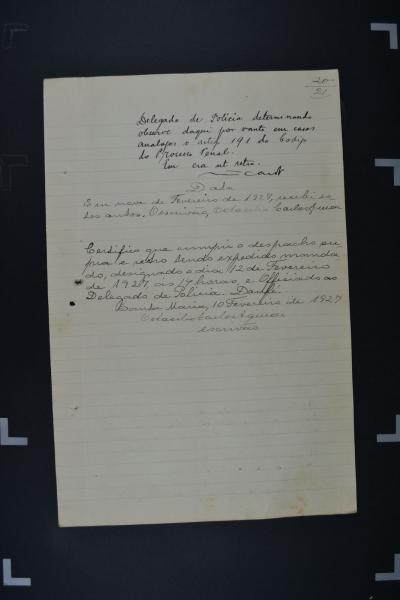 20
21
Delegado de Policia determinando
observe daqui por vante em casos
analogos o artigo 191 do Codigo
do Processo Penal.
Em era ut retro.
Data
Em nove de Fevereiro de 1927, recebi es
tes autos. O escrivão, Octacilio Carlos
Certifico que cumpri o despacho su
pra e retro sendo expedido manda
do, designado o dia 12 de Fevereiro
de 1927, as 14 horas, e officiado ao
Delegado de Policia. Dou fé.
Santa Maria, 10 Fevereiro de 1927
Octacilio Carlos
escrivão